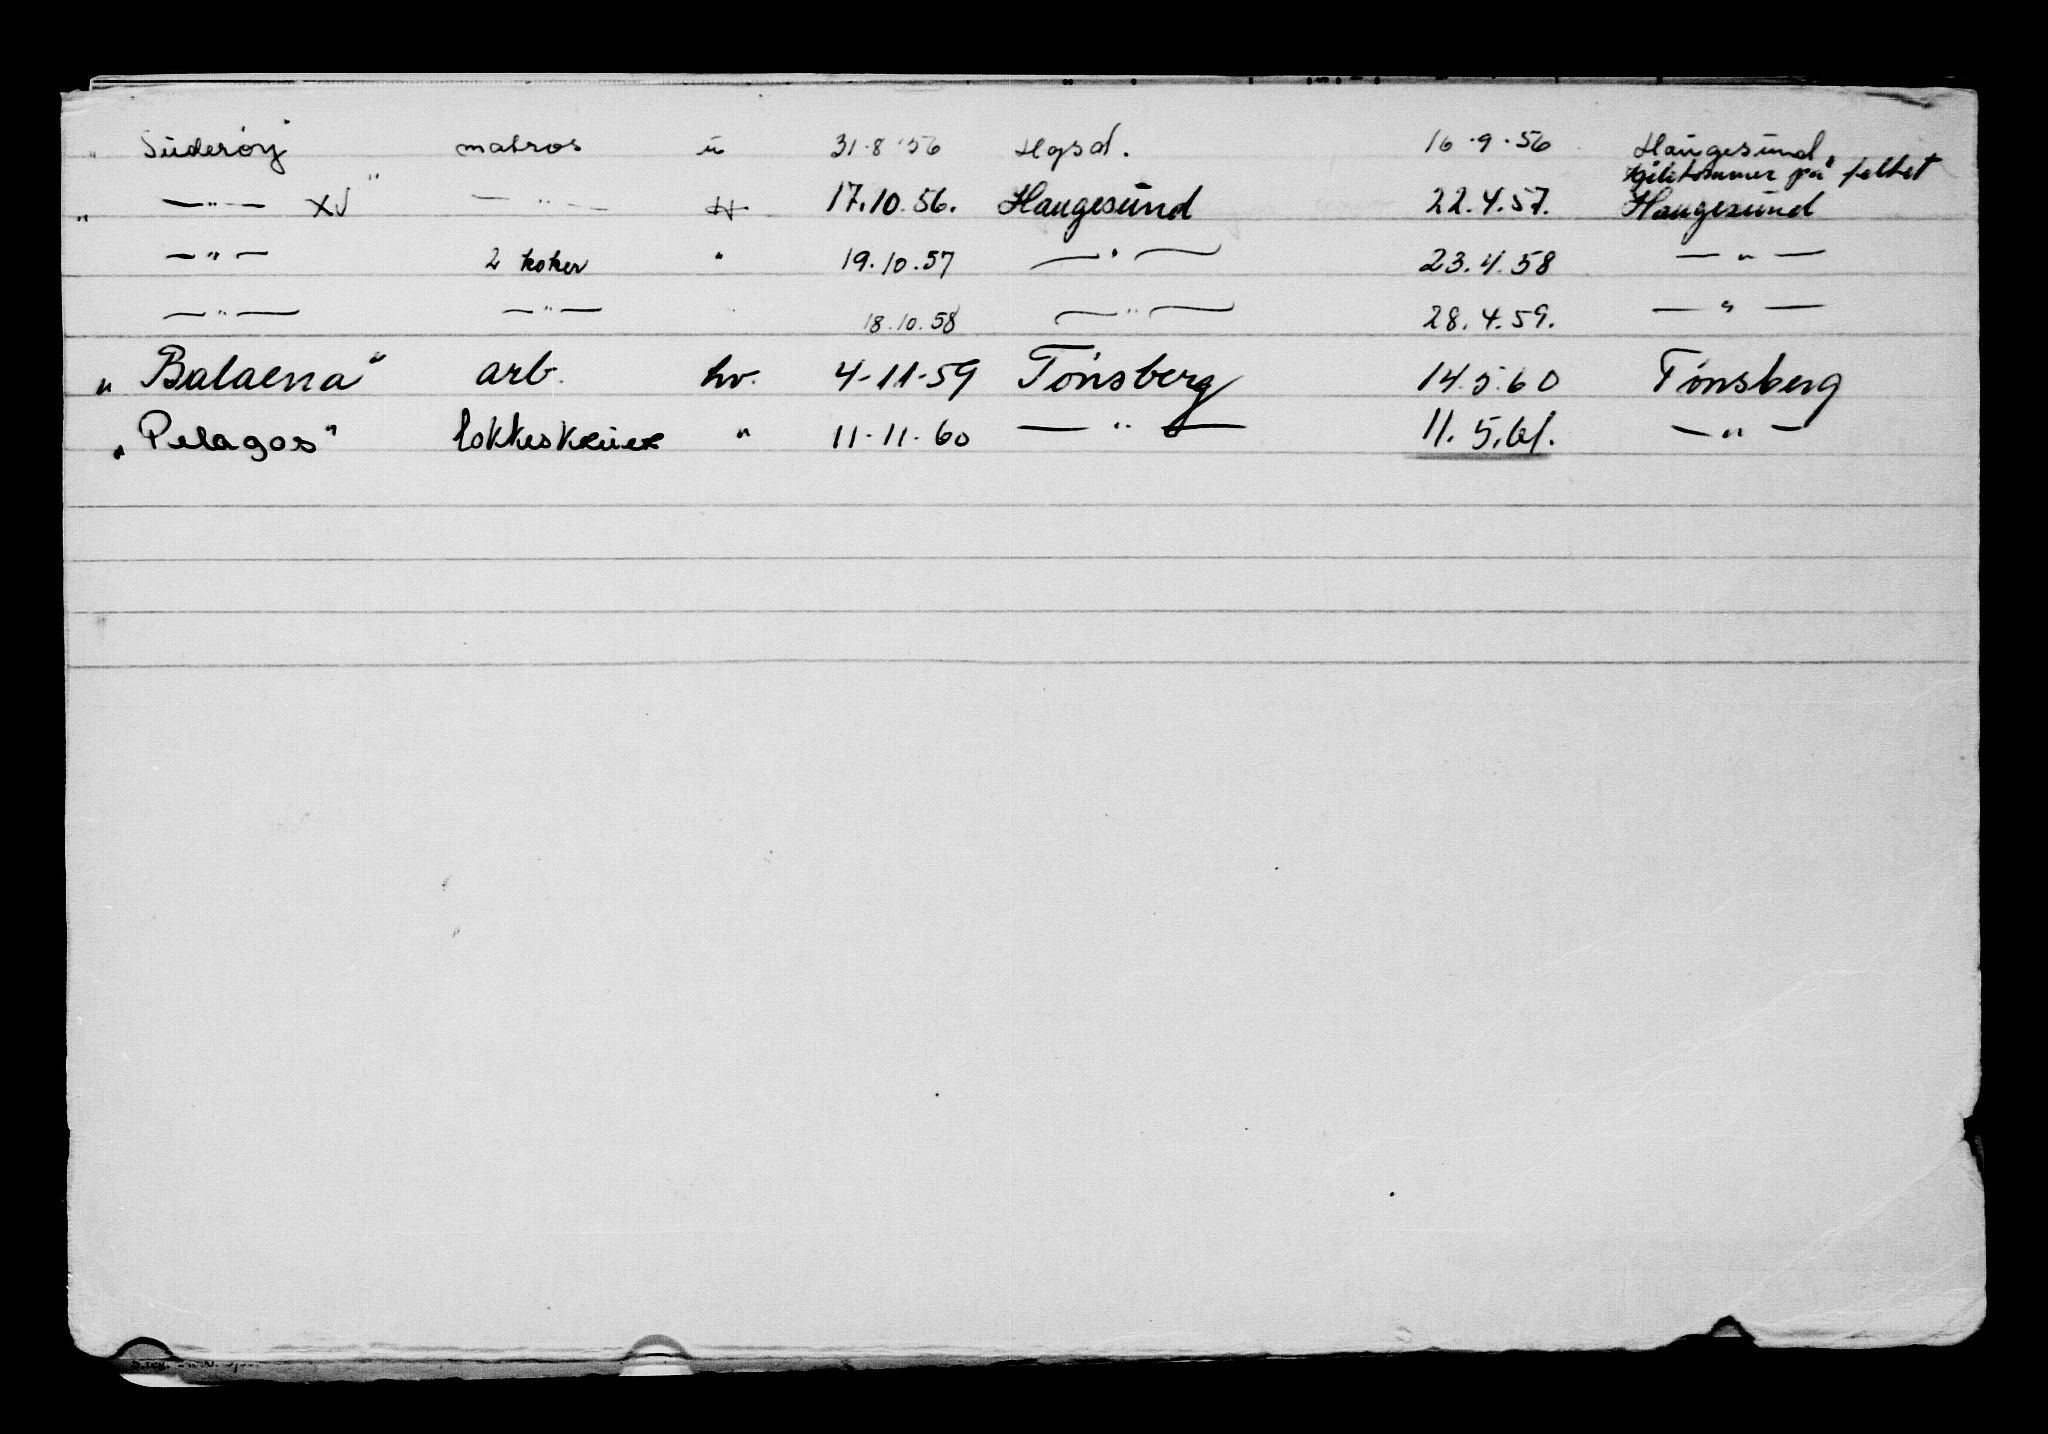 „Suderøy” matros u 31·8·56 Hgsd. 16·9·56 Haugesund,
på feltet
„ —"— XV” —"— H 17.10.56. Haugesund 22.4.57. Haugesund
—"— 2 koker " 19.10.57 —"— 23.4.58 —"—
—"— —"— " 18.10.58 —"— 28.4.59. —"—
„Balaena” arb. hv. 4-11-59 Tønsberg 14.5.60 Tønsberg
„Pelagos” " 11-11-60 —"— 11.5.61. —"—